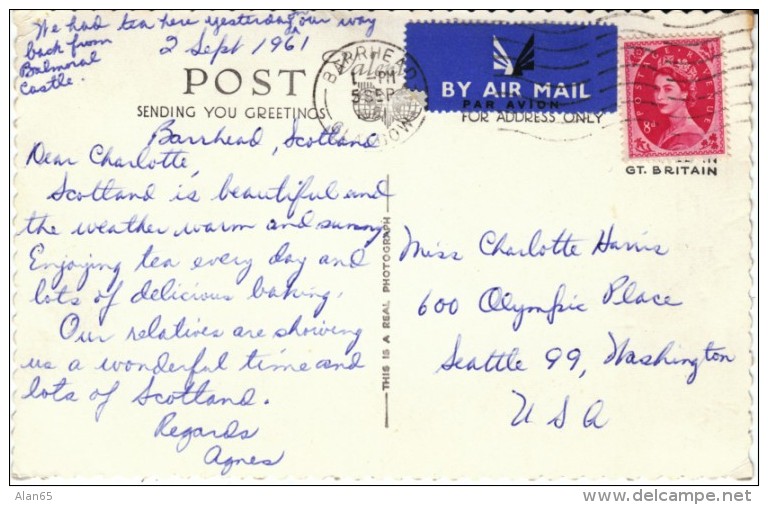 We had tea here yesterday on our way
back from
Balmoral
Castle.
2 Sept 1961
POST
SENDING YOU GREETINGS
BARRHEAD
PM
SEP
GLASGOW
BY AIR MAIL
PAR AVION
FOR ADDRESS ONLY
POSTAGE REVENUE
8D
IN
GT. BRITAIN
Barrhead, Scotland
Dear Charlotte,
Scotland is beautiful and
the weather warm and sunny.
Enjoying tea every day and
lots of delicious baking.
Our relatives are showing
us a wonderful time and
lots of Scotland.
Regards
Agnes
THIS IS A REAL PHOTOGRAPH
Miss Charlotte Harris
600 Olympic Place
Seattle 99, Washington
USA
Alan65
http://www.delcampe.net